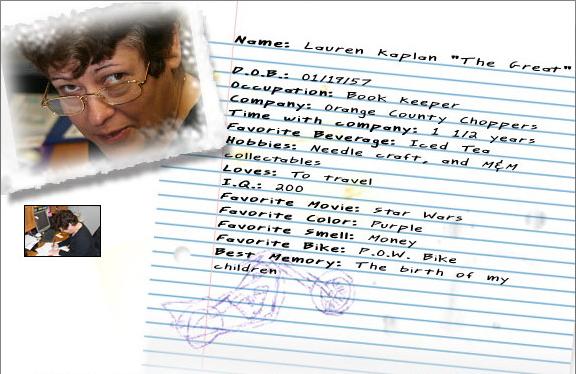 Name: Lauren Kaplan "The Great"
D.O.B.: 01/19/57
Occupation: Book Keeper
Company: Orange County Choppers
Time with company: 1 1/2 years
Favorite Beverage: Iced Tea
Hobbies: Needle craft, and M&M
collectables
Loves: To travel
I.Q.: 200
Favorite Movie: Star Wars
Favorite Color: Purple
Favorite Smell: Money
Favorite Bike: P.O.W. Bike
Best Memory: The birth of my
children